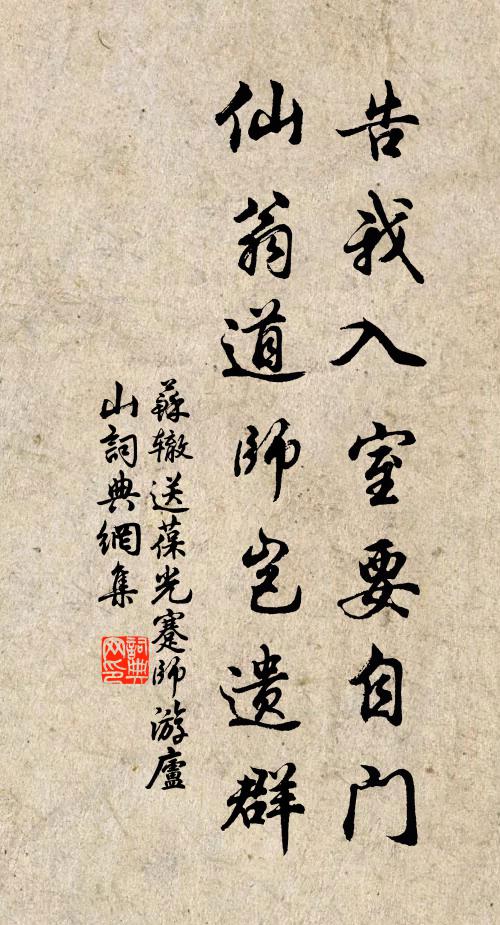 告我入室要自门
仙翁道师岂遗群
蘇辙送葆光蹇师游廬
山詞典網集
詞典网印